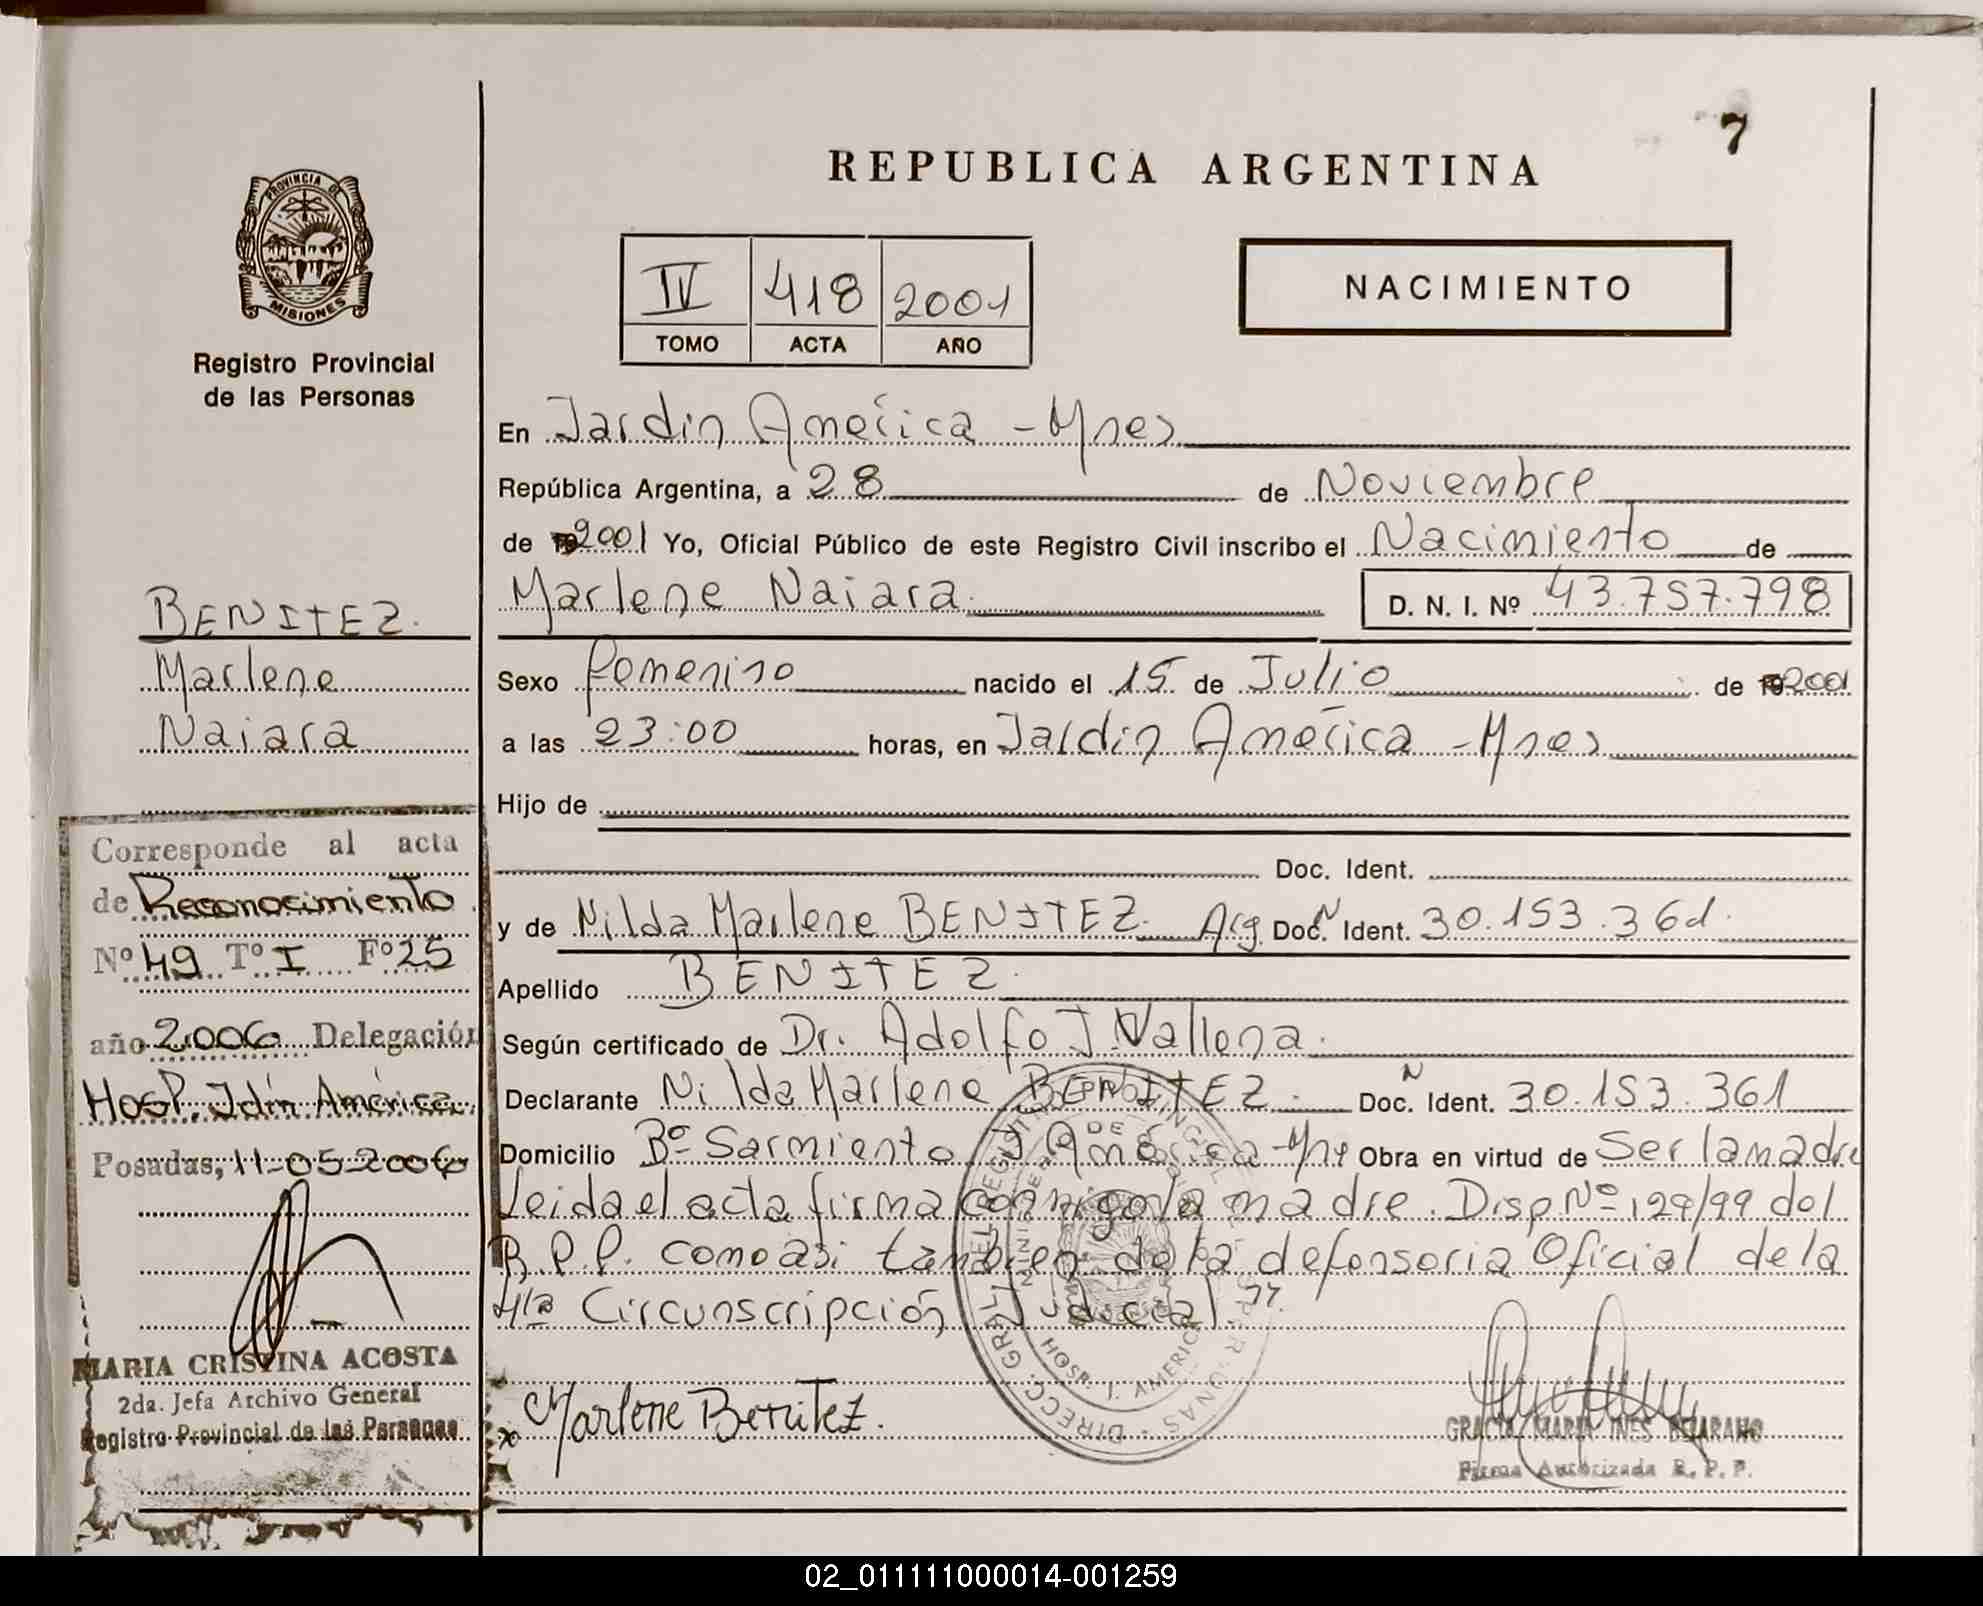 7
REPUBLICA ARGENTINA
PROVINCIA DE
MISIONES
Registro Provincial
de las Personas
IV 418 2001
TOMO ACTA AÑO
NACIMIENTO
En Jardin América - Mnes
República Argentina, a 28 de Noviembre
de 19 2001 Yo, Oficial Público de este Registro Civil inscribo el Nacimiento de
Marlene Naiara D. N. I. Nº 43.757.798
Sexo femenino nacido el 15 de Julio de 19 2001
a las 23:00 horas, en Jardin América - Mnes
Hijo de
Doc. Ident.
y de Nilda Marlene BENITEZ Arg. Doc. N Ident. 30.153.361
Apellido BENITEZ
Según certificado de Dr. Adolfo J. Vallena
Declarante Nilda Marlene BENITEZ Doc. N Ident. 30.153.361
Domicilio Bº Sarmiento J. América - Mnes Obra en virtud de Ser la madre
Leida el acta firma conmigo la madre. Disp Nº 129/99 del
R.P.P. como asi tambien de la defensoria Oficial de la
4ta Circunscripción Judicial".
Marlene Benitez.
GRACIA MARIA INES BEJARANO
Firma Autorizada R. P. P.
DIRECC. GRAL. DEL REGISTRO PROVINCIAL DE
HOSP. J. AMERICA
BENITEZ.
Marlene
Naiara
Corresponde al acta
de Reconocimiento
Nº 49 Tº I Fº 25
año 2006 Delegación
Hosp. Jdín América.
Posadas, 11-05-2006
MARIA CRISTINA ACOSTA
2da. Jefa Archivo General
Registro Provincial de las Personas
02_011111000014-001259